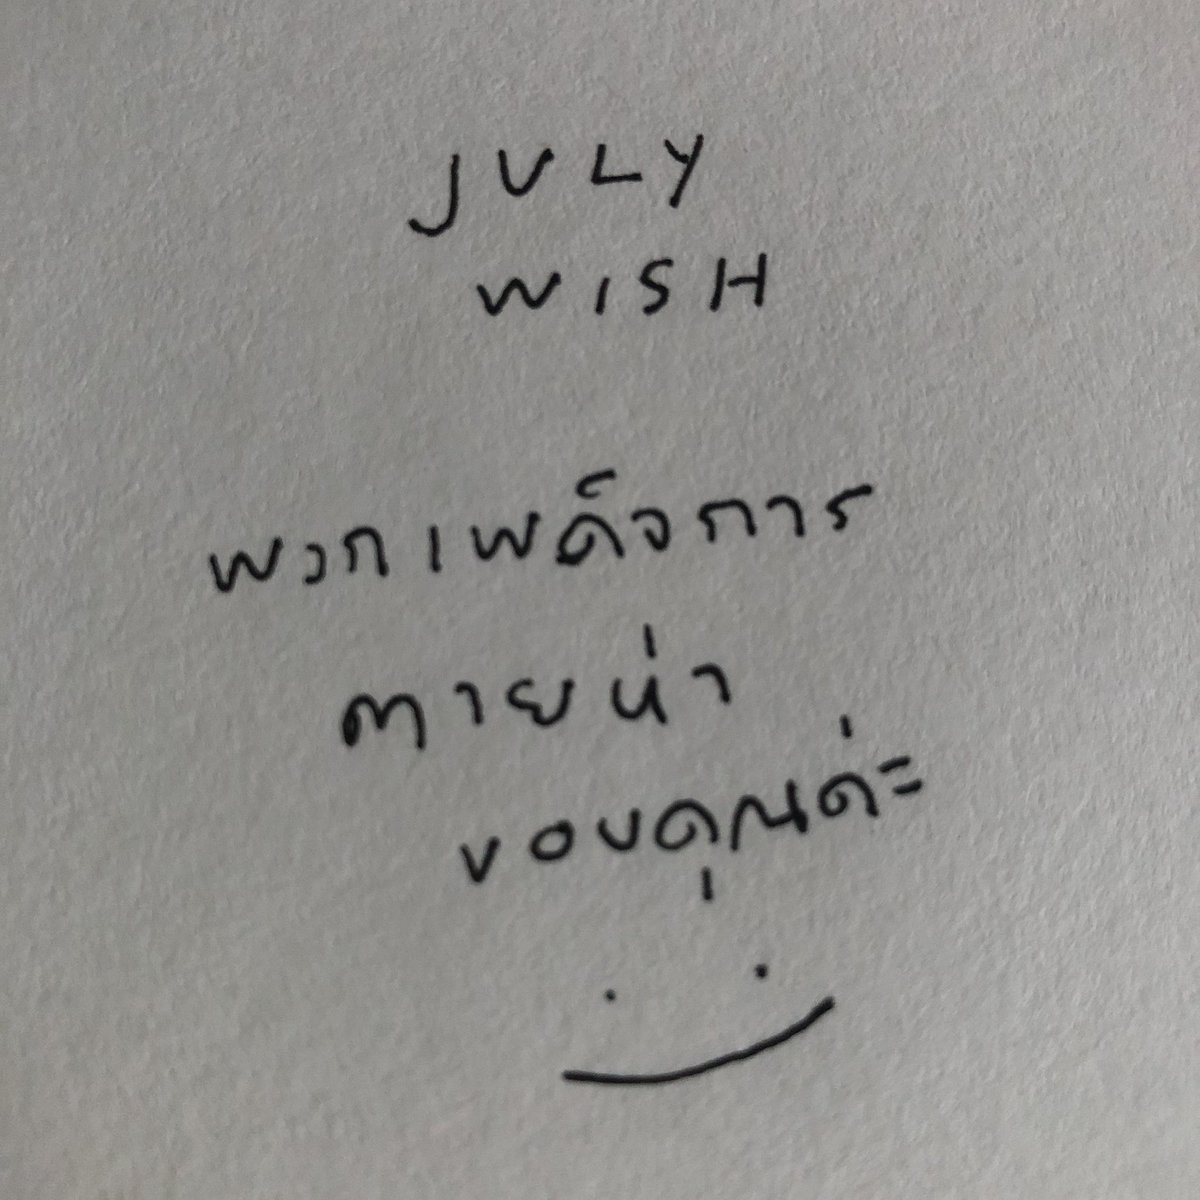 JULY
WISH
พวกเผด็จการ
ตายห่า
ขอบคุณค่ะ